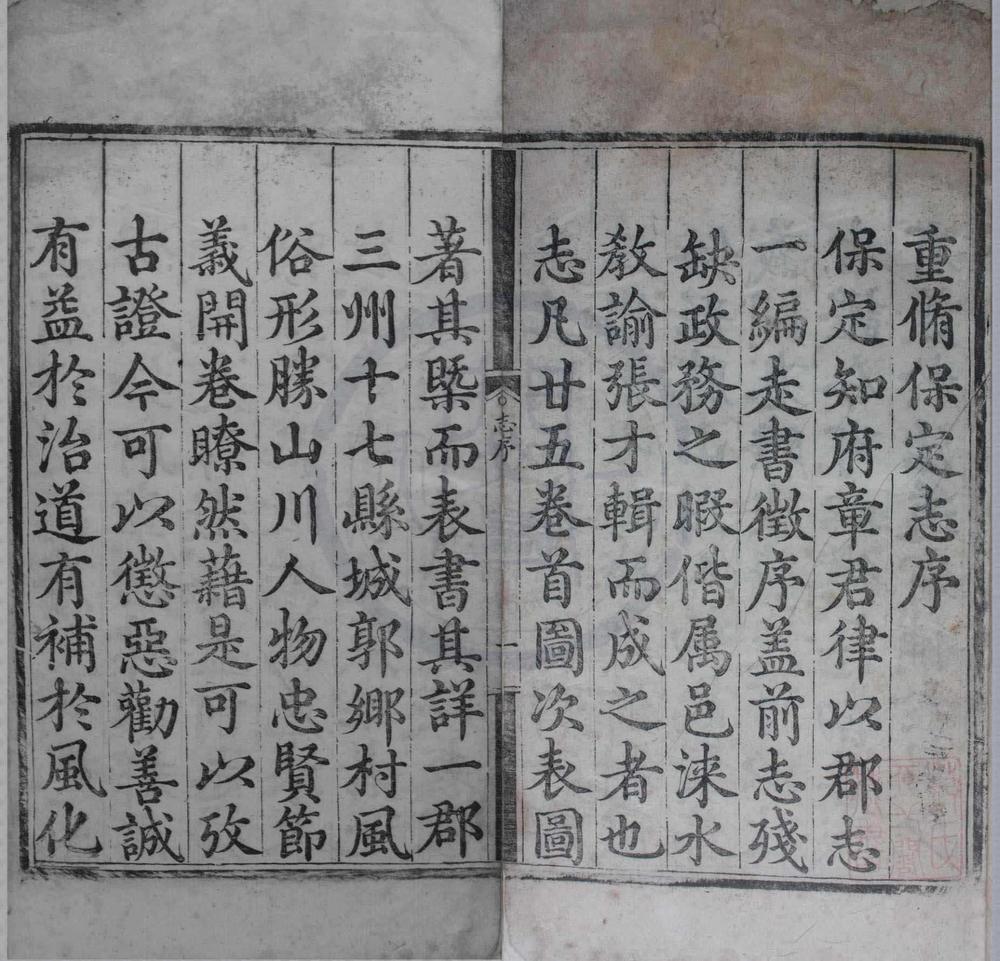 重脩保定志序
保定知府章君律以郡志
一編走書徴序盖前志殘
缺政務之暇偕属邑淶水
敎諭張才輯而成之者也
志凡廿五卷首圖次表圖
志序
一
著其槩而表書其詳一郡
三州十七縣城郭鄉村風
俗形勝山川人物忠賢節
義開卷瞭然藉是可以攷
古證今可以懲惡勸善誠
有益於治道有補於風化